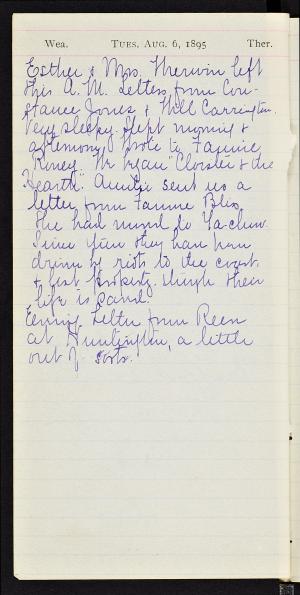 Wea. TUES. AUG. 6, 1895 Ther.
Esther & Mrs. Sherwin left
this A. M. Letters from Con-
stance Jones & Will Carrington.
Very sleepy. Slept morning &
afternoon. Wrote to Fannie
We began "Cloister & the
Hearth". Auntie sent us a
letter from Fannie Bliss.
She had moved to Ya-chow.
Since then they have been
driven by riots to the coast,
& lost property though their
life is saved.
Evening Letter from Reen
at Huntington, a little
out of sorts.